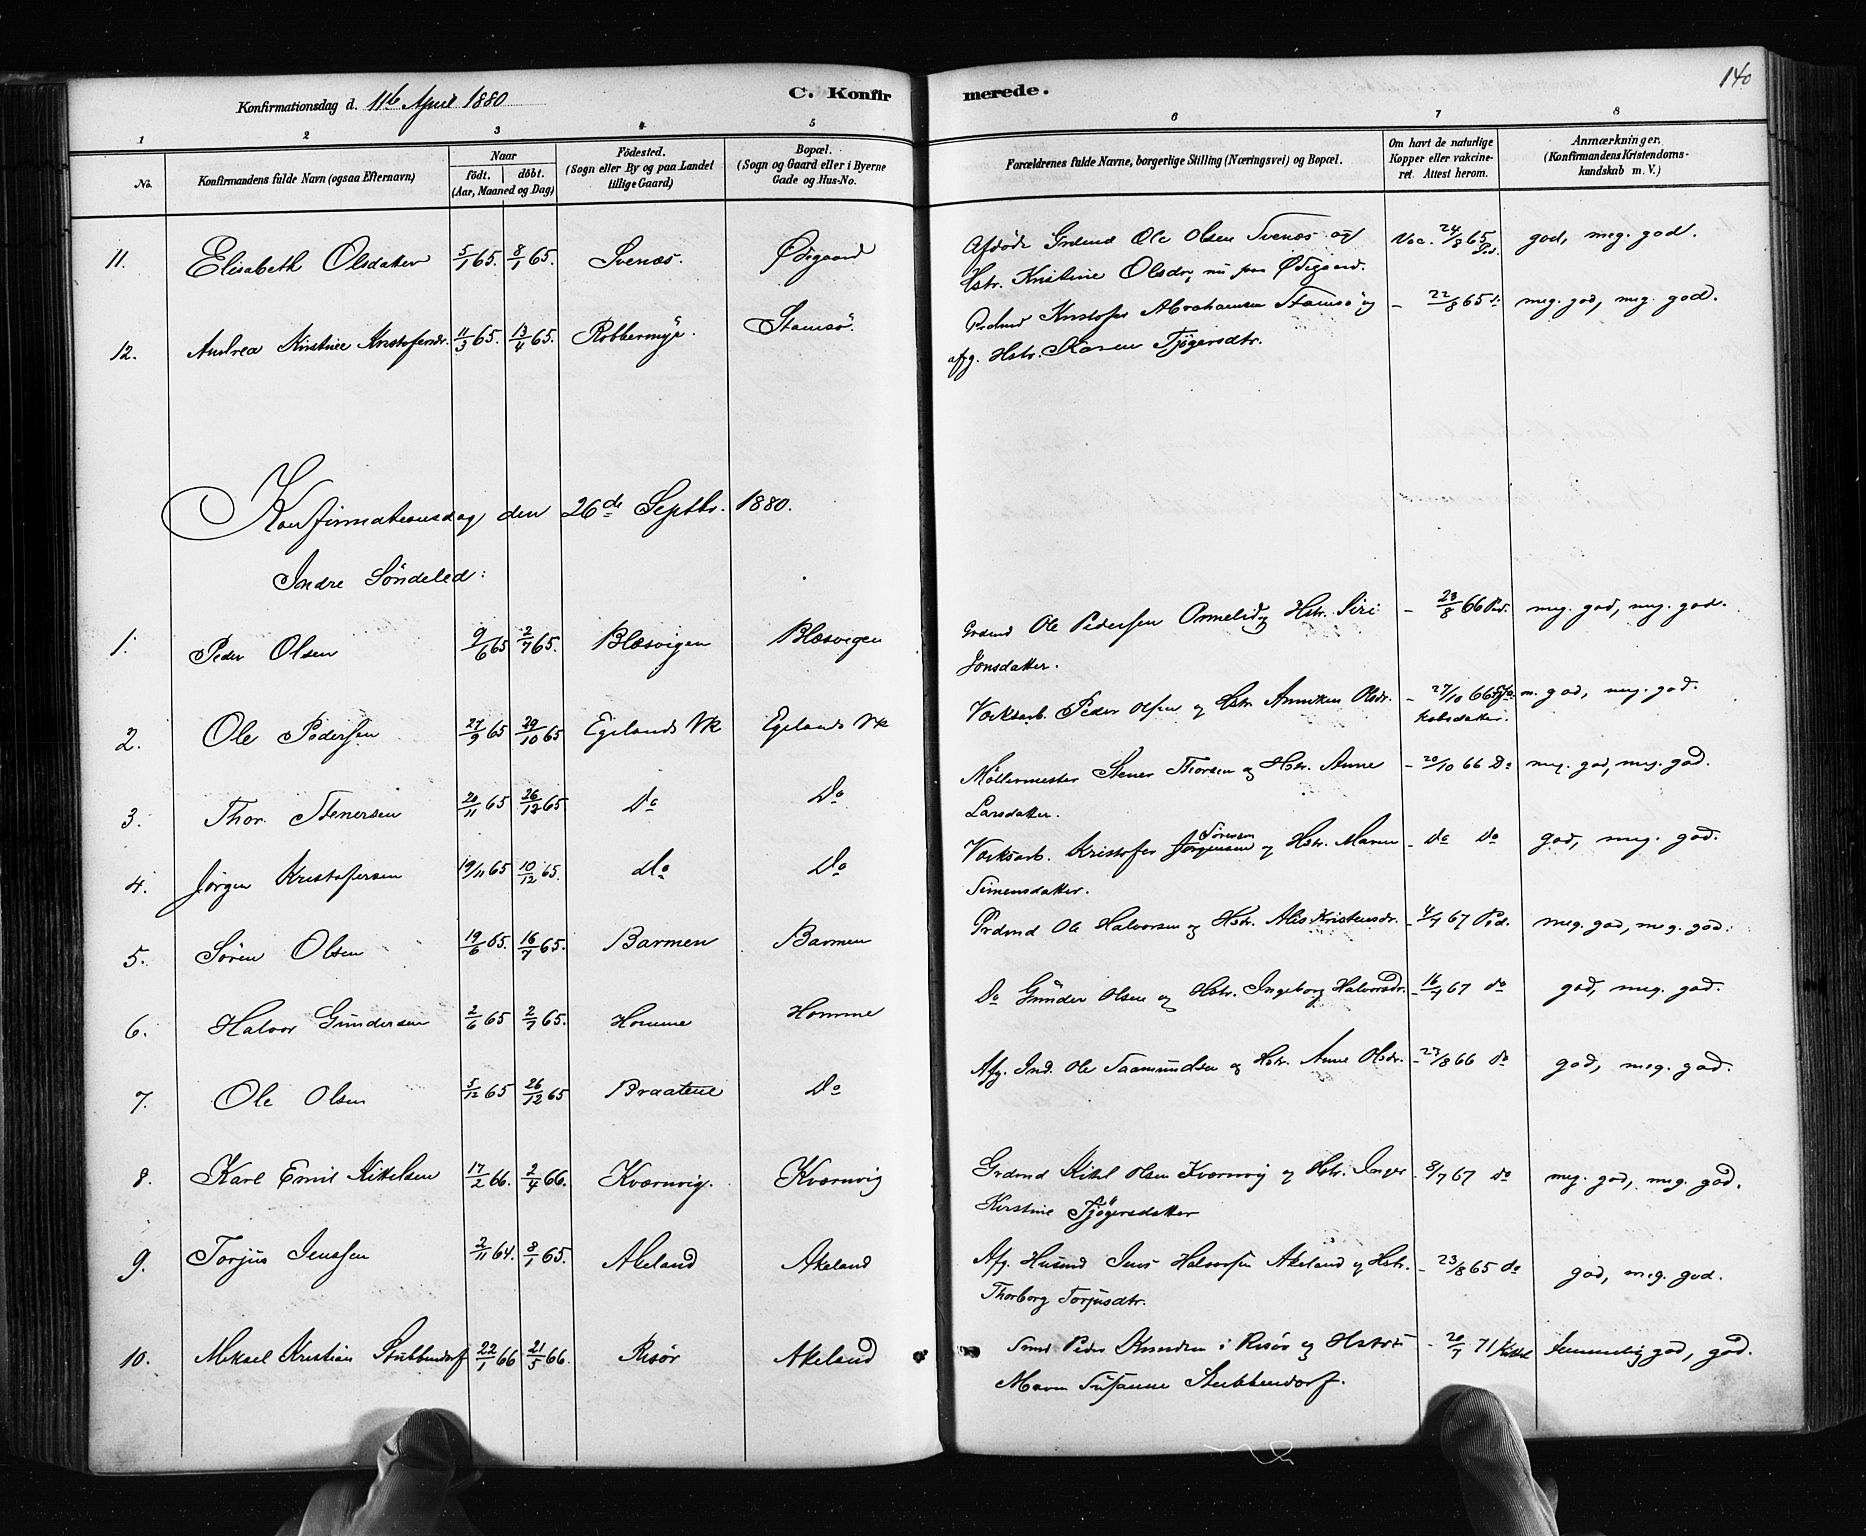 140
Konfirmationsdag d. 11te April 1880
C. Konfirmerede.
1 2 3 4 5 6 7 8
No. Konfirmandens fulde Navn (ogsaa Efternavn) Naar födt. döbt. (Aar, Maaned og Dag) Födested. (Sogn eller By og paa Landet tillige Gaard) Bopæl. (Sogn og Gaard eller i Byerne Gade og Hus-No. Forældrenes fulde Navne, borgerlige Stilling (Næringsvei) og Bopæl. Om havt de naturlige Kopper eller vakcineret. Attest herom. Anmærkninger. (Konfirmandens Kristendomskundskab m. V.)
11. Elisabeth Olsdatter 5/1 65. 8/1 65. Svenæs. Ödegaard Afdöde Grdmd Ole Olsen Svenæs og Vac. 24/8 65 Ped. god, meg. god.
Hstr. Kristine Olsdr, nu paa Ödegaard.
12. Andrea Kirstine Kristofersdr. 11/3 65. 13/4 65. Robbermyr. Stamsö. Pldmd Kristofer Abrahamsen Stamsö og – 22/8 65 meg. god, meg. god.
afg. Hstr. Karen Tjögersdtr.
Konfirmationsdag den 26de Septbr. 1880.
Indre Söndeled:
1. Peder Olsen 9/6 65 2/7 65. Blæsvigen Blæsvigen Grdmd Ole Pedersen Ormelid og Hstr. Siri – 23/8 66 Ped. meg. god, meg. god.
Jonsdatter.
2. Ole Pedersen 27/9 65 29/10 65 Egelands Vk Egelands Vk Værksarb. Peder Olsen og Hstr. Anniken Olsdr. – 27/10 66 m. god, meg. god.
kobsdatter.
3. Thor Stenersen 20/11 65 26/12 65 Do Do Möllermester Stener Thorsen og Hstr. Anne – 20/10 66 Do meg. god, meg. god.
Larsdatter.
4. Jörgen Kristofersen 19/11 65 10/12 65. do Do Værksarb. Kristofer Jörgensen Sörensen og Hstr. Maren – Do Do god, meg. god.
Simensdatter.
5. Sören Olsen 19/6 65. 16/7 65. Barmen Barmen Prdmd Ole Halvorsen og Hstr. Alis Kristensdr. – 4/7 67 Ped. meg. god, meg. god.
6. Halvor Gundersen 2/6 65 2/7 65. Homme Homme Do Gunder Olsen og Hstr. Ingeborg Halvorsdr. – 16/7 67 do god, meg. god.
7. Ole Olsen 5/12 65 26/12 65 Braatene Do Afg. Ind. Ole Saamundsen og Hstr. Anne Olsdr. – 23/8 66 do god, meg. god.
8. Karl Emil Kittelsen 17/2 66. 2/4 66. Kværnvig. Kværnvig Grdmd Kittel Olsen Kværnvig og Hstr. Inger – 8/7 67 do meg. god, meg. god.
Kirstine Tjögersdatter
9. Torjus Jenssen 2/11 64. 8/1 65. Akeland Akeland Afg. Husmd Jens Halvorsen Akeland og Hstr. – 23/8 65 do god, meg. god.
Thorborg Torjusdtr.
10. Mikael Kristian Stubbendorf 22/1 66 21/5 66. Risör Akeland Smed Peder Knudsen i Risör og Hstr. – 20/7 71 Kittel temmelig god, god.
Maren Susanne Stubbendorf.